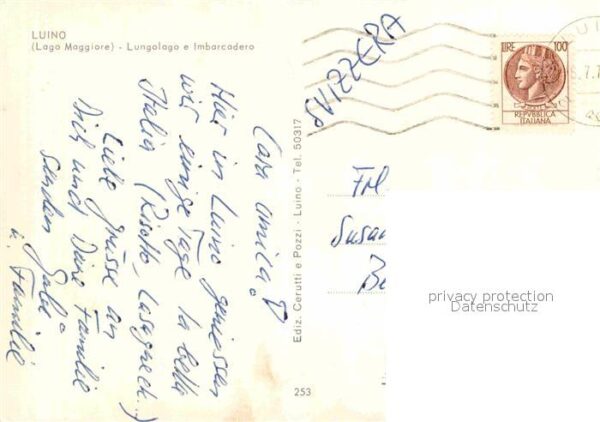 LUINO
(Lago Maggiore) - Lungolago e Imbarcadero
Cara amica!
Hier in Luino geniessen
wir einige Tage la bella
Italia (Risotto, Lasagne etc...)
Liebe Grüsse an
Dich und Deine Familie
senden
u. Familie
Ediz. Cerutti e Pozzi - Luino - Tel. 50317
253
SVIZZERA
LIRE 100
REPVBBLICA
ITALIANA
Frl.
Susan
privacy protection
Datenschutz